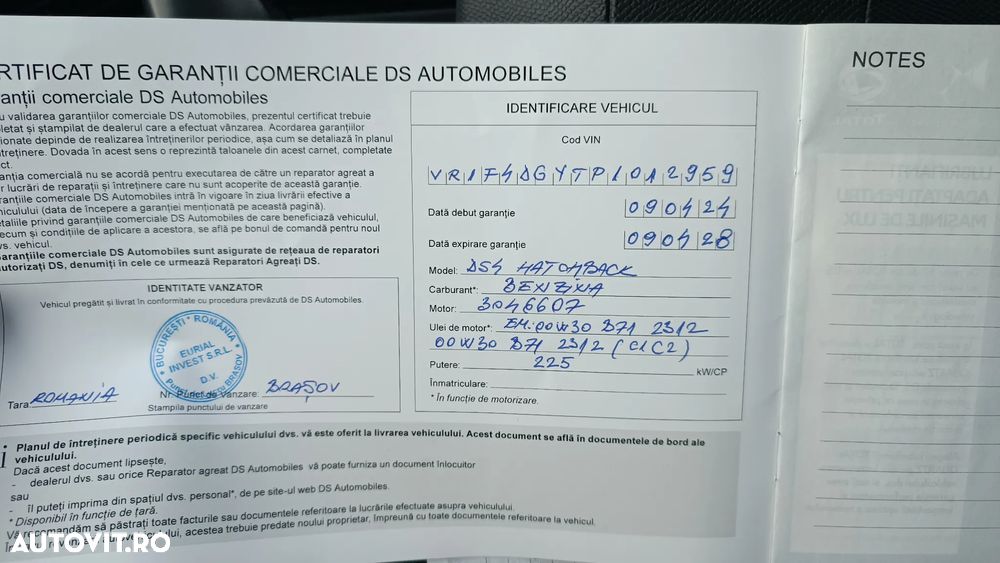 RTIFICAT DE GARANȚII COMERCIALE DS AUTOMOBILES
anții comerciale DS Automobiles
u validarea garanțiilor comerciale DS Automobiles, prezentul certificat trebuie
letat și ștampilat de dealerul care a efectuat vânzarea. Acordarea garanțiilor
ionate depinde de realizarea întreținerilor periodice, așa cum se detaliază în planul
ntreținere. Dovada în acest sens o reprezintă taloanele din acest carnet, completate
ct.
anția comercială nu se acordă pentru executarea de către un reparator agreat a
r lucrări de reparații și întreținere care nu sunt acoperite de această garanție.
ranțiile comerciale DS Automobiles intră în vigoare în ziua livrării efective a
hiculului (data de începere a garanției menționată pe această pagină).
etaliile privind garanțiile comerciale DS Automobiles de care beneficiază vehiculul,
ecum și condițiile de aplicare a acestora, se află pe bonul de comandă pentru noul
vs. vehicul.
aranțiile comerciale DS Automobiles sunt asigurate de rețeaua de reparatori
utorizați DS, denumiți în cele ce urmează Reparatori Agreați DS.
IDENTITATE VANZATOR
Vehicul pregătit și livrat în conformitate cu procedura prevăzută de DS Automobiles.
BUCUREȘTI * ROMÂNIA
EURIAL
INVEST S.R.L.
D.V.
BRAȘOV
Tara: ROMANIA Nr. Punct de vanzare: BRAȘOV
Stampila punctului de vanzare
IDENTIFICARE VEHICUL
Cod VIN
VR1F4DGYTP1012959
Dată debut garanție 090424
Dată expirare garanție 090428
Model: DS4 HATCHBACK
Carburant*: BENZINA
Motor: 3046607
Ulei de motor*: EM:00W30 B71 2312
00W30 B71 2312 (C1C2)
Putere: 225 kW/CP
Înmatriculare:
* În funcție de motorizare.
i Planul de întreținere periodică specific vehiculului dvs. vă este oferit la livrarea vehiculului. Acest document se află în documentele de bord ale
vehiculului.
Dacă acest document lipsește,
- dealerul dvs. sau orice Reparator agreat DS Automobiles vă poate furniza un document înlocuitor
sau
- îl puteți imprima din spațiul dvs. personal*, de pe site-ul web DS Automobiles.
* Disponibil în funcție de țară.
Vă recomandăm să păstrați toate facturile sau documentele referitoare la lucrările efectuate asupra vehiculului.
vehiculului, acestea trebuie predate noului proprietar, împreună cu toate documentele referitoare la vehicul.
NOTES
AUTOVIT.RO